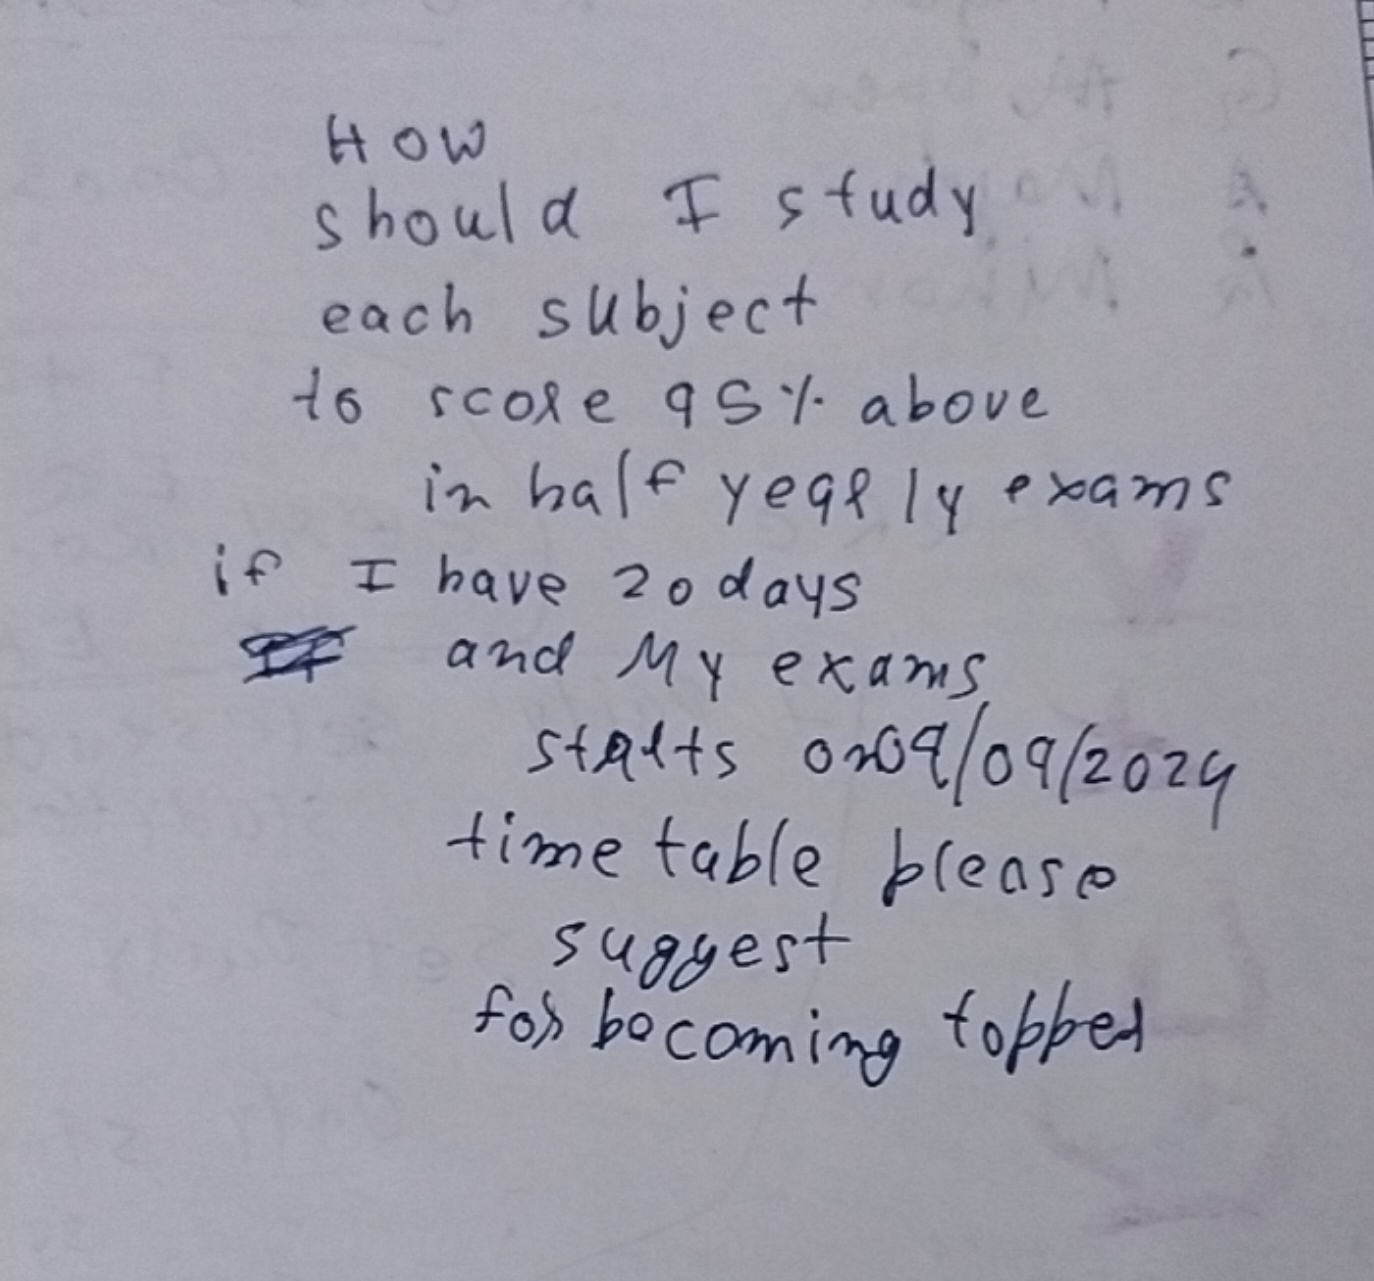 How
should I study
each subject
to score 95% above
in half yearly exams
if I have 20 days
and My exams
starts on 09/09/2024
time table please
suggest
for becoming topper